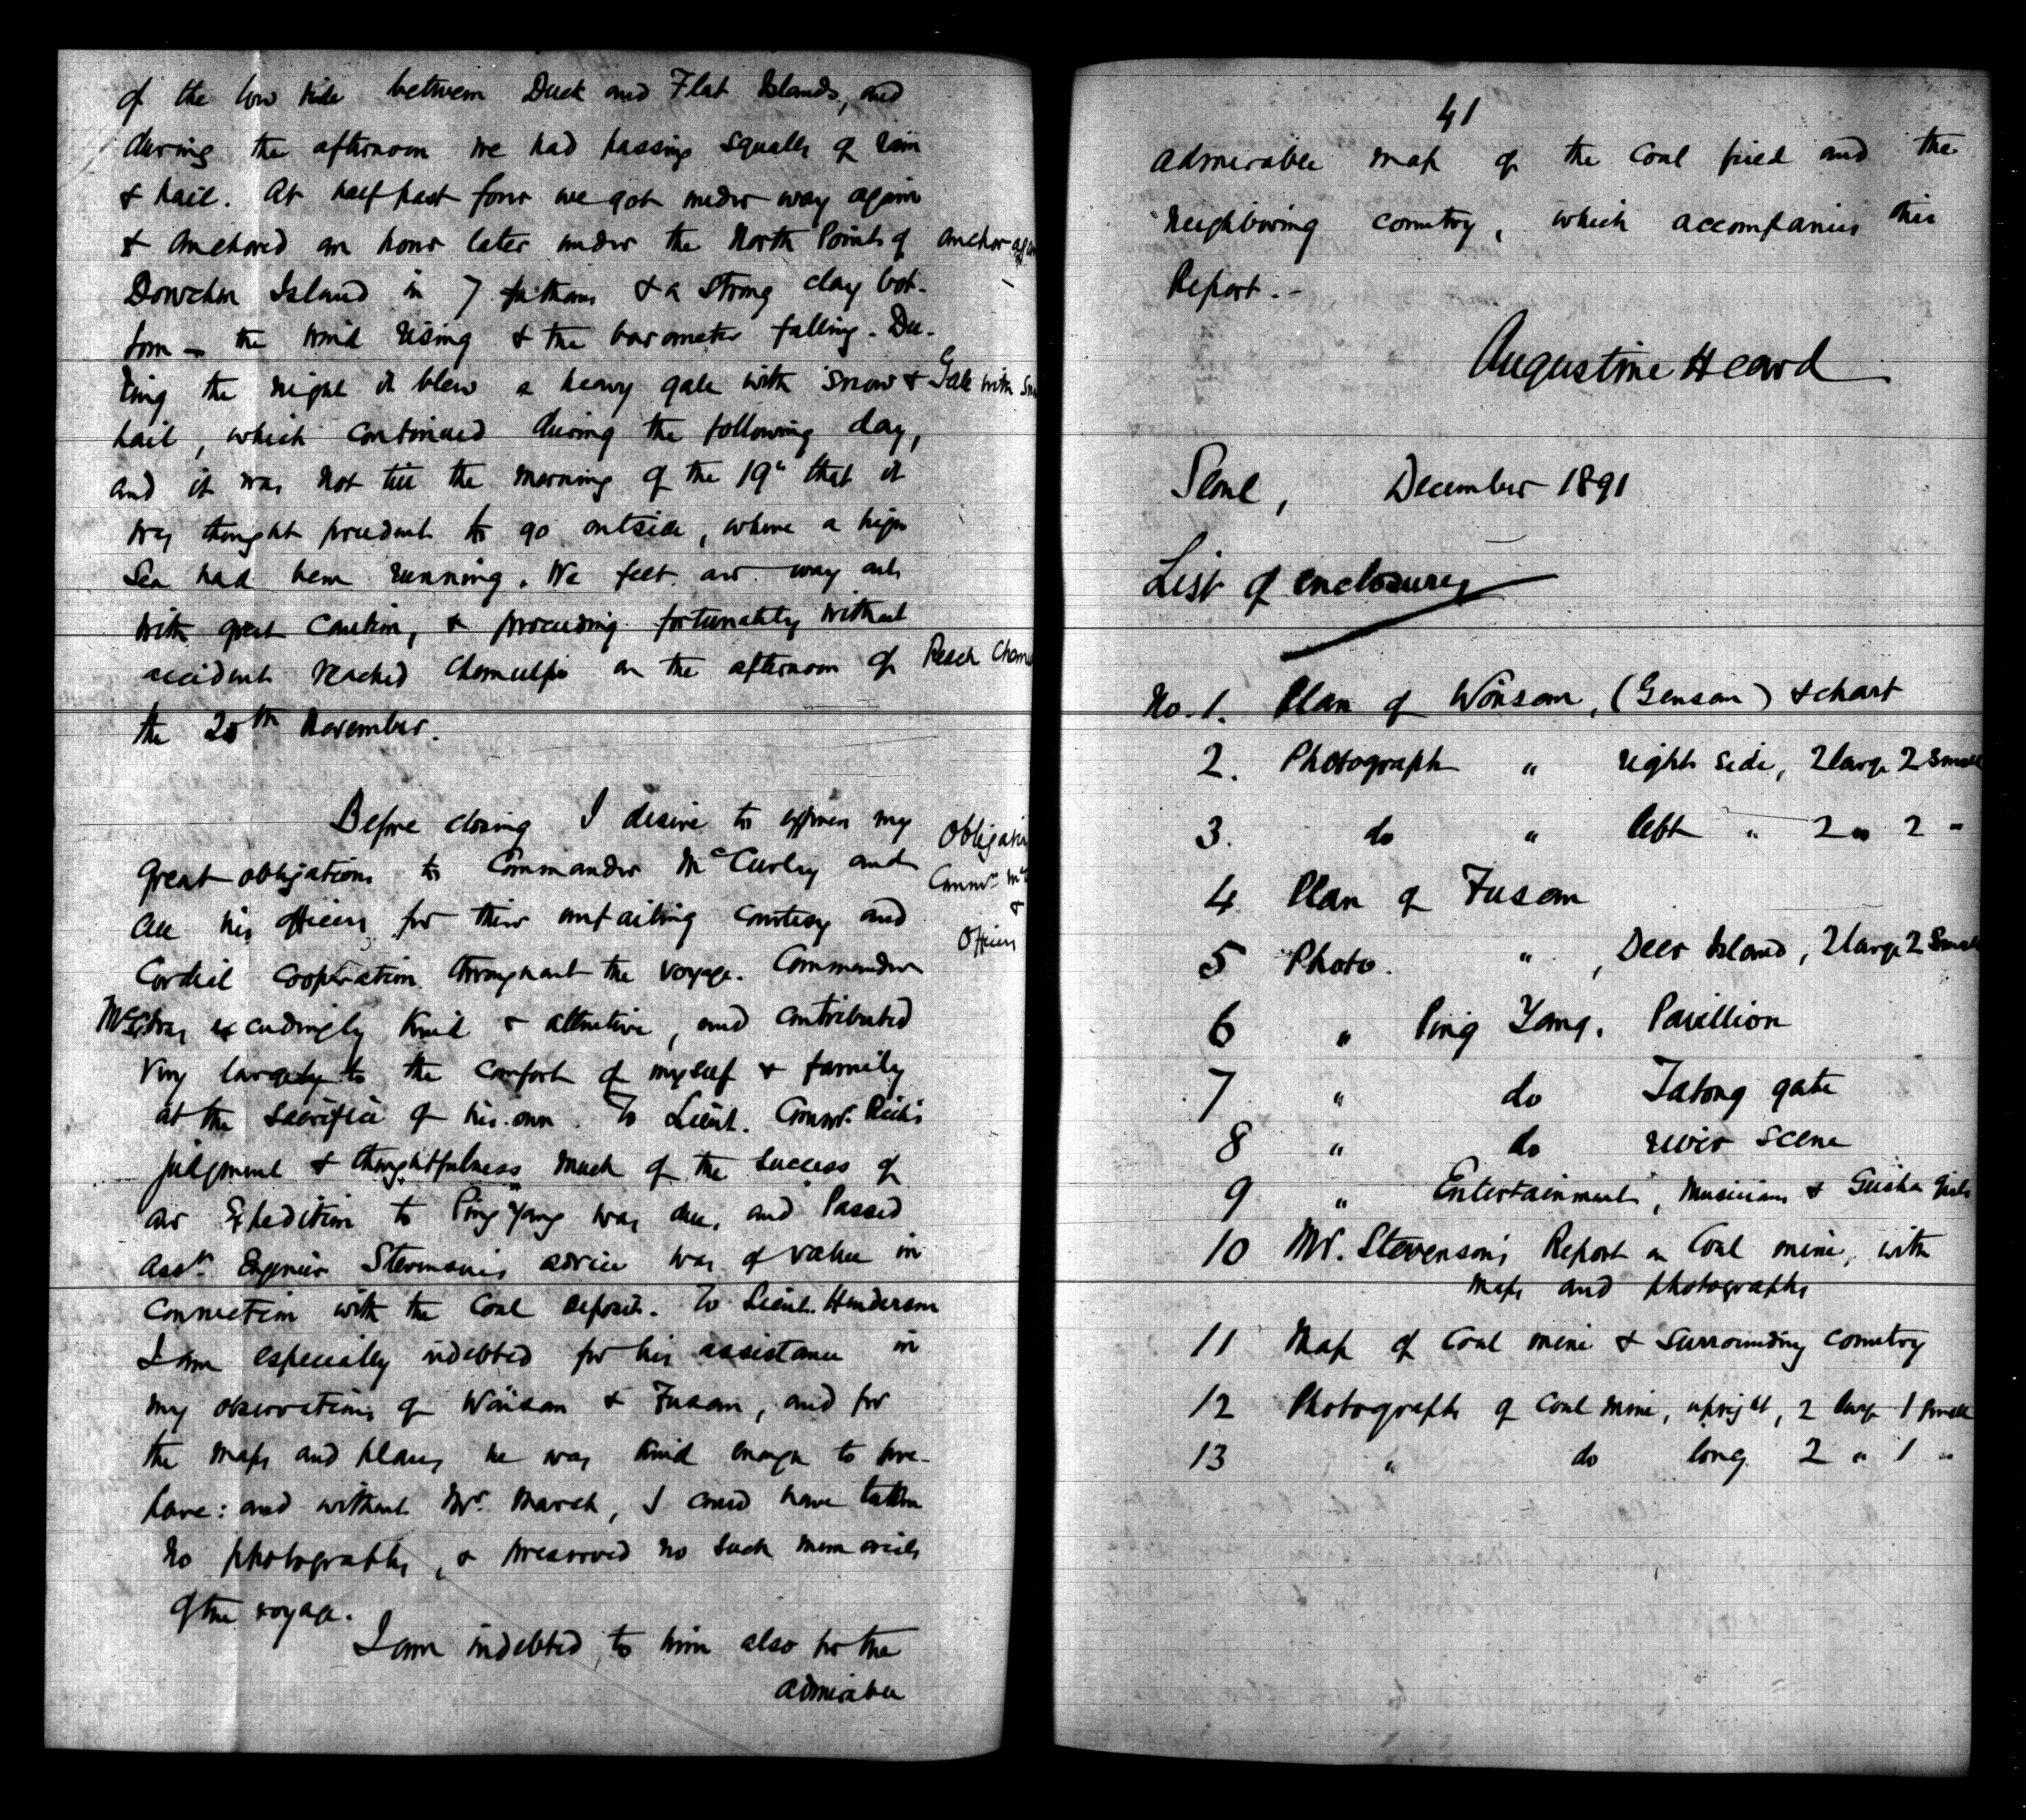 of the low tide between Duck and Flat Islands, and
during the afternoon we had passing squalls of rain
& hail. At half past four we got under way again
& anchored an hour later under the North Point of
anchor again
Island in 7 fathoms & a strong clay bot-
tom - the wind rising & the barometer falling. Du-
ring the night it blew a heavy gale with snow &
Gale with
hail, which continued during the following day,
and it was not till the morning of the 19" that it
was thought prudent to go outside, where a high
sea had been running. We felt our way out
with great caution, & proceeding fortunately without
accident reached Chemulpo on the afternoon of
Reach
the 20th November.
Before closing I desire to express my
great obligations to Commander McCurley and
all his officers for their unfailing courtesy and
Obligation
&
Officers
cordial cooperation throughout the voyage. Commander
McC. was exceedingly kind & attentive, and contributed
very largely to the comfort of myself & family
at the sacrifice of his own. To Lieut. Commr.
judgment & thoughtfulness much of the success of
our Expedition to Ping Yang was due, and Passed
Asst. Engineer Stevenson's advice was of value in
connection with the coal deposits. To Lieut. Henderson
I am especially indebted for his assistance in
my observations of Wönsan & Fusan, and for
the maps and plans he was kind enough to pre-
pare: and without Mr. March, I could have taken
no photographs, & preserved no such memorials
of the voyage.
I am indebted to him also for the
admirable
41
admirable map of the coal field and the
neighboring country, which accompanies this
Report. -
Augustine Heard
Seoul, December 1891
List of enclosures
No. 1. Plan of Wönsan, (Gensan) & chart
2. Photograph " right side, 2 large 2 small
3. do " left " 2 " 2 "
4 Plan of Fusan
5 Photo. " , Deer Island, 2 large 2 small
6 " Ping Yang. Pavillion
7 " do Tatong gate
8 " do river scene
9 " Entertainment, Musicians & Geisha girls
10 Mr. Stevenson's Report on Coal mine, with
maps and photographs
11 Map of Coal mine & surrounding country
12 Photographs of Coal mine, upright, 2 large 1 small
13 " do long 2 " 1 "